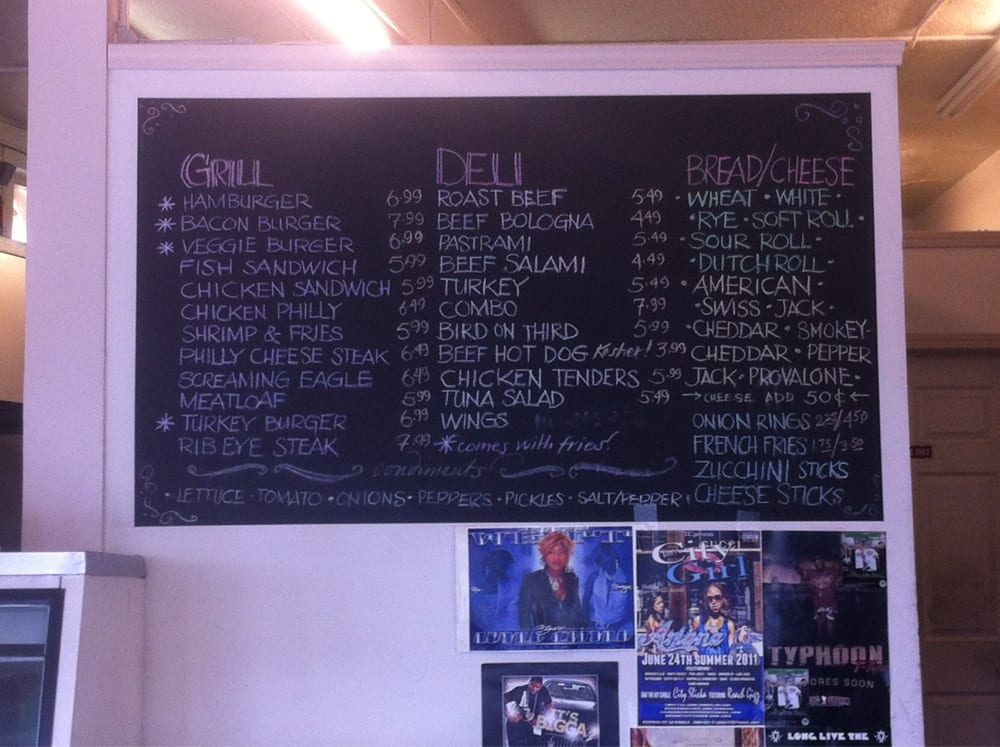 GRILL
* HAMBURGER 6.99
* BACON BURGER 7.99
* VEGGIE BURGER 6.99
FISH SANDWICH 5.99
CHICKEN SANDWICH 5.99
CHICKEN PHILLY 6.49
SHRIMP & FRIES 5.99
PHILLY CHEESE STEAK 6.49
SCREAMING EAGLE 6.49
MEATLOAF 5.99
* TURKEY BURGER 6.99
RIB EYE STEAK 7.99
DELI
ROAST BEEF 5.49
BEEF BOLOGNA 4.49
PASTRAMI 5.49
BEEF SALAMI 4.49
TURKEY 5.49
COMBO 7.99
BIRD ON THIRD 5.99
BEEF HOT DOG Kosher! 3.99
CHICKEN TENDERS 5.99
TUNA SALAD 5.49
WINGS
* comes with fries!
BREAD/CHEESE
· WHEAT · WHITE ·
· RYE · SOFT ROLL ·
· SOUR ROLL ·
· DUTCH ROLL ·
· AMERICAN ·
· SWISS · JACK ·
· CHEDDAR · SMOKEY
CHEDDAR · PEPPER
JACK · PROVALONE ·
→ CHEESE ADD 50¢ ←
ONION RINGS 2.25/4.50
FRENCH FRIES 1.75/3.50
ZUCCHINI STICKS
CHEESE STICKS
condiments!
· LETTUCE · TOMATO · ONIONS · PEPPERS · PICKLES · SALT/PEPPER
GUCCI
City
Girl
JUNE 24TH SUMMER 2011
FEATURING
City Slicka FEATURING Roach Gigz
TYPHOON
STORES SOON
IT'S
BIGGA
LONG LIVE THE